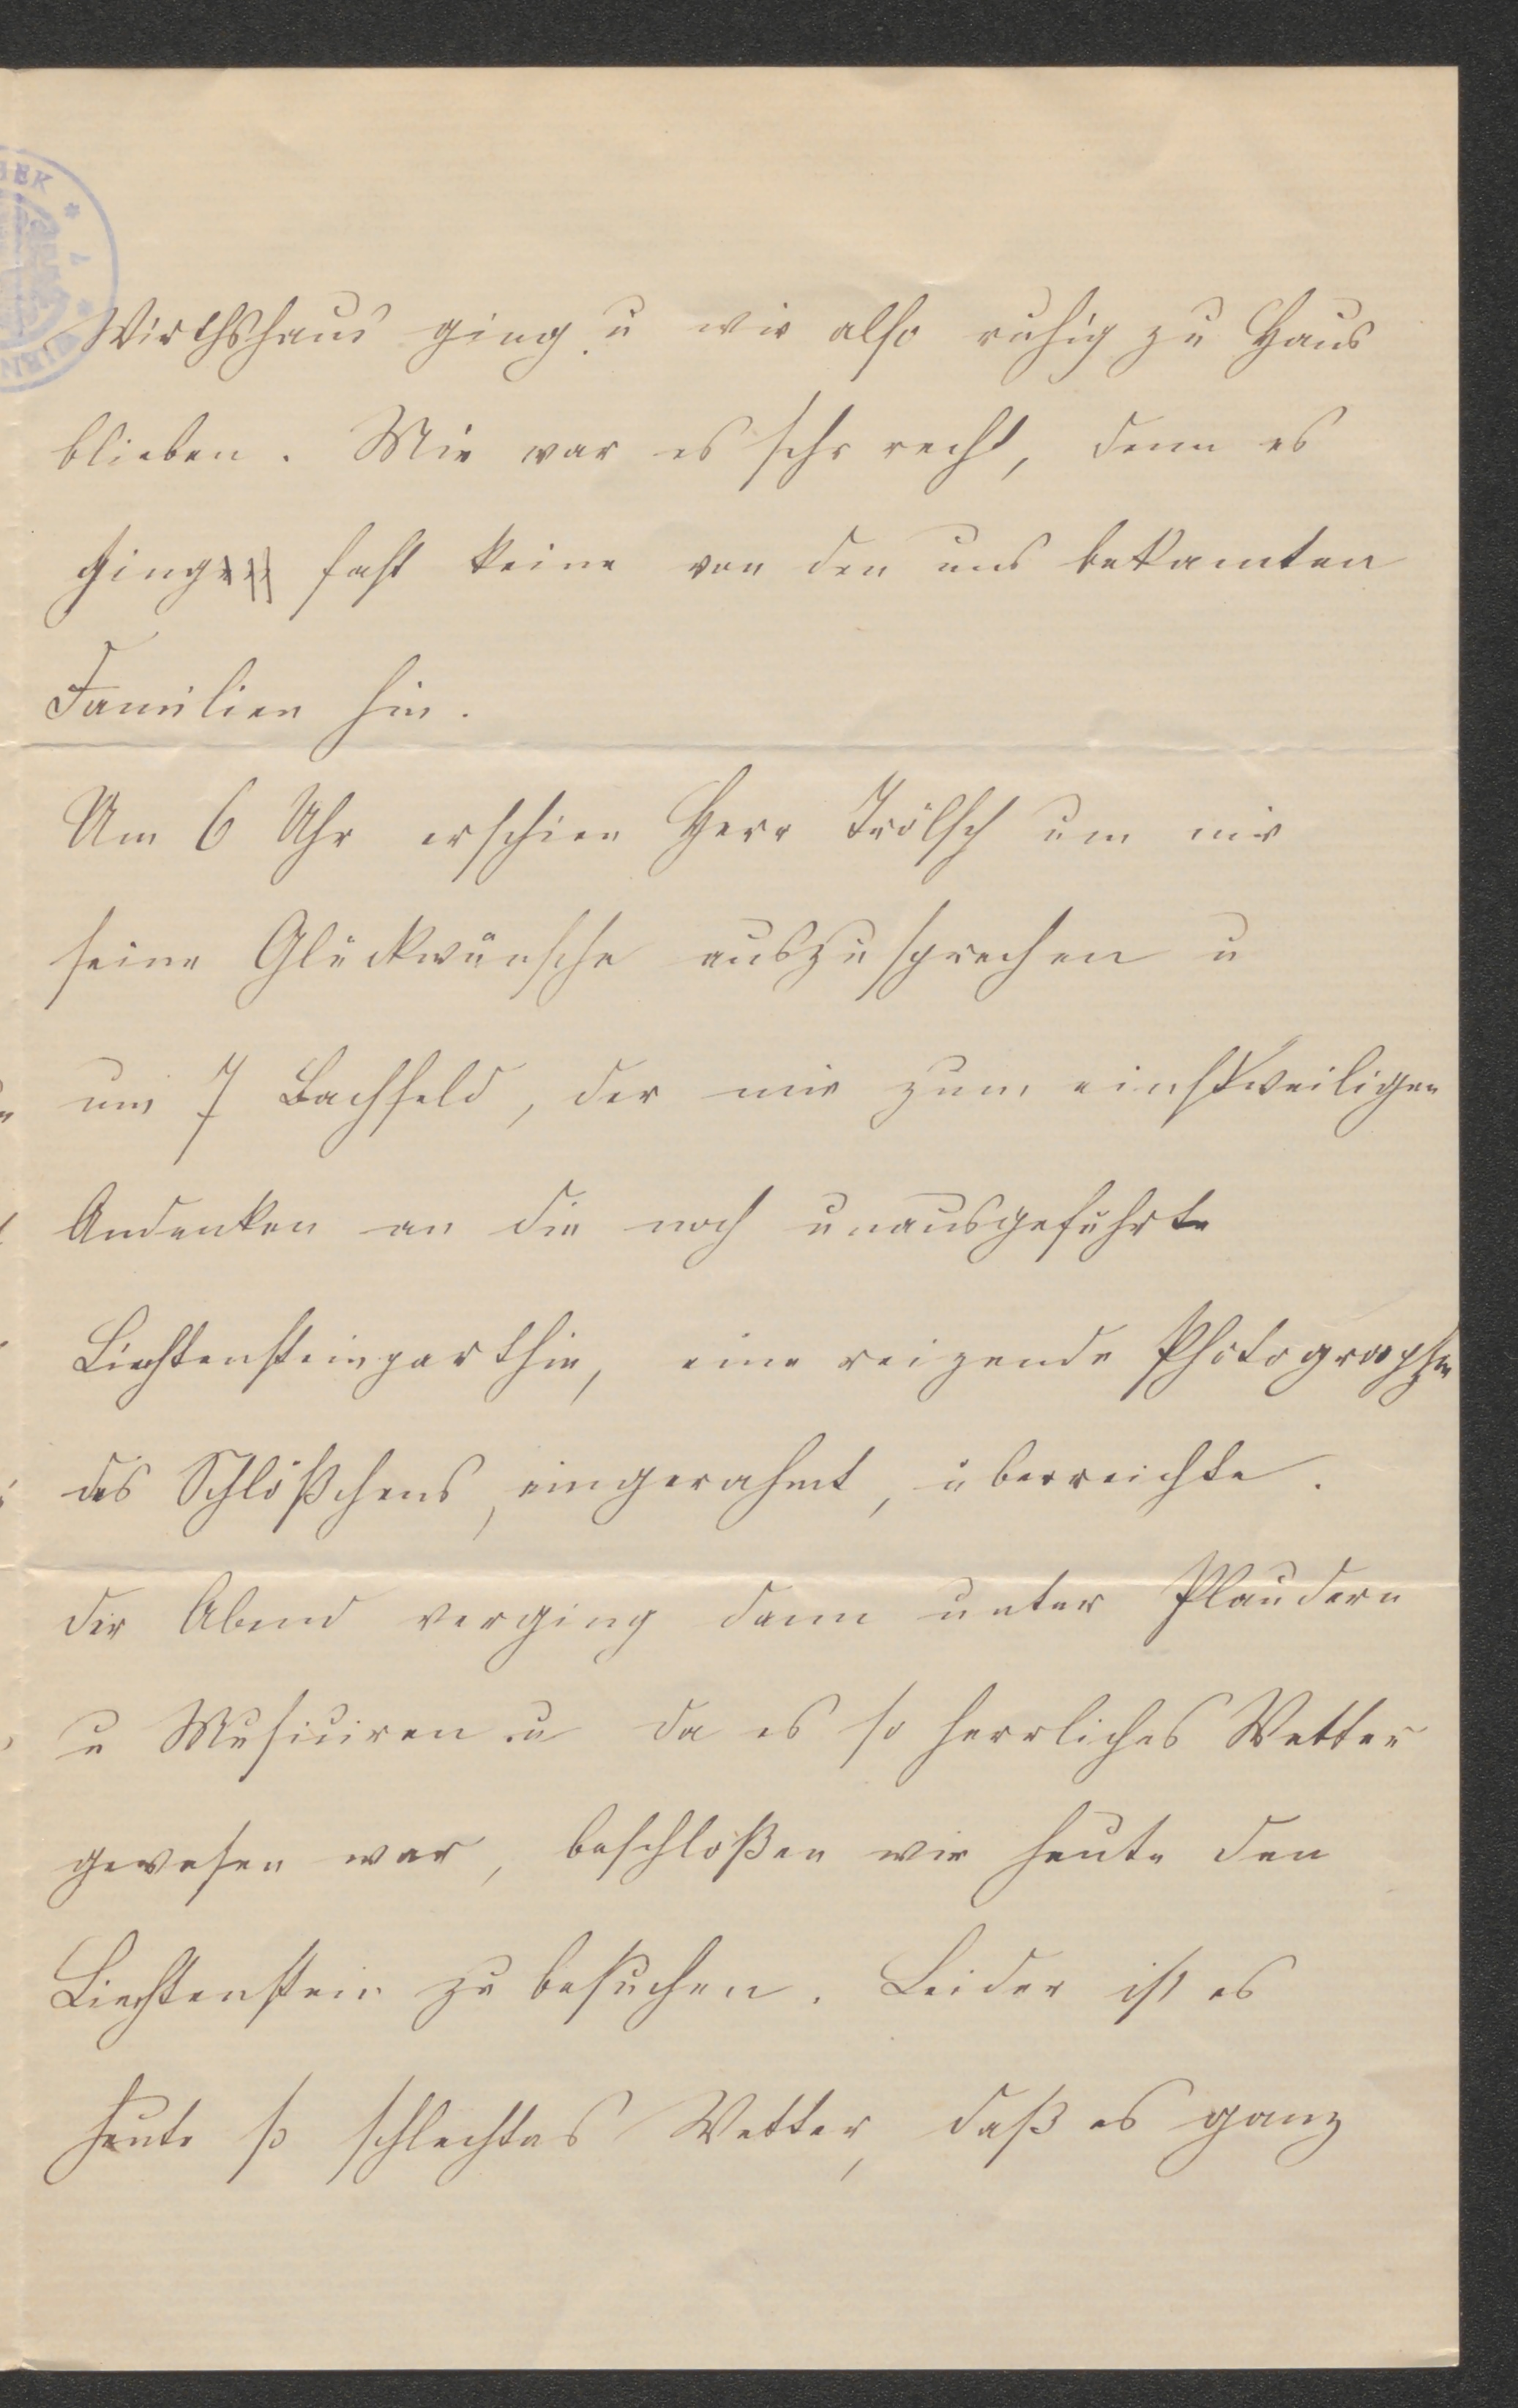 Wirthshaus ging u wir also ruhig zu Haus
blieben. Mir war es sehr recht, denn es
ging fast keine von den uns bekannten
Familien hin.
Um 6 Uhr erschien Herr Trölsch um mir
seine Glückwünsche auszusprechen u
um 7 Bachfeld, der mir zum einstweiligen
Andenken an die noch unausgeführte
Liechtensteinparthie, eine reizende Photographie
des Schlößchens, eingerahmt, überreichte.
Der Abend verging dann unter Plaudern
u Musiciren u da es so herrliches Wetter
gewesen war, beschloßen wir heute den
Liechtenstein zu besuchen. Leider ist es
heute so schlechtes Wetter, daß es ganz